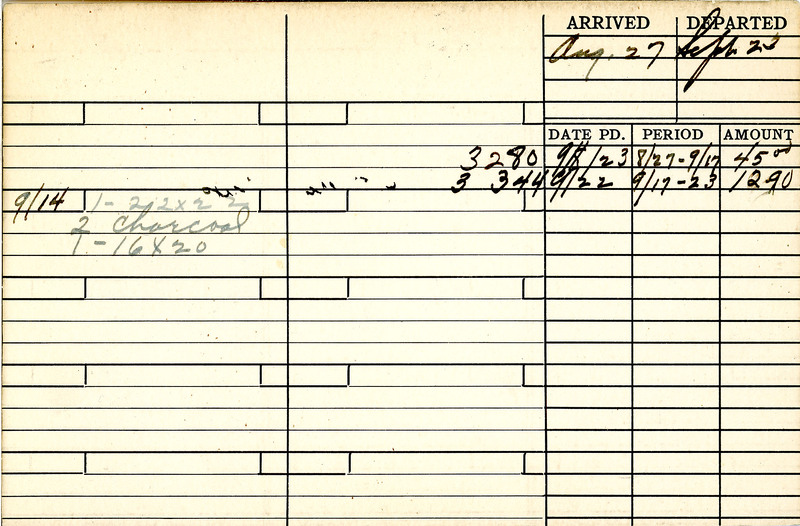 ARRIVED DEPARTED
Aug. 27 Sept. 23
DATE PD. PERIOD AMOUNT
3280 9/8/23 8/27-9/17 45 00
3 344 9/22 9/17-23 12 90
9/14 1-22x2
2 Charcoal
1-16x20